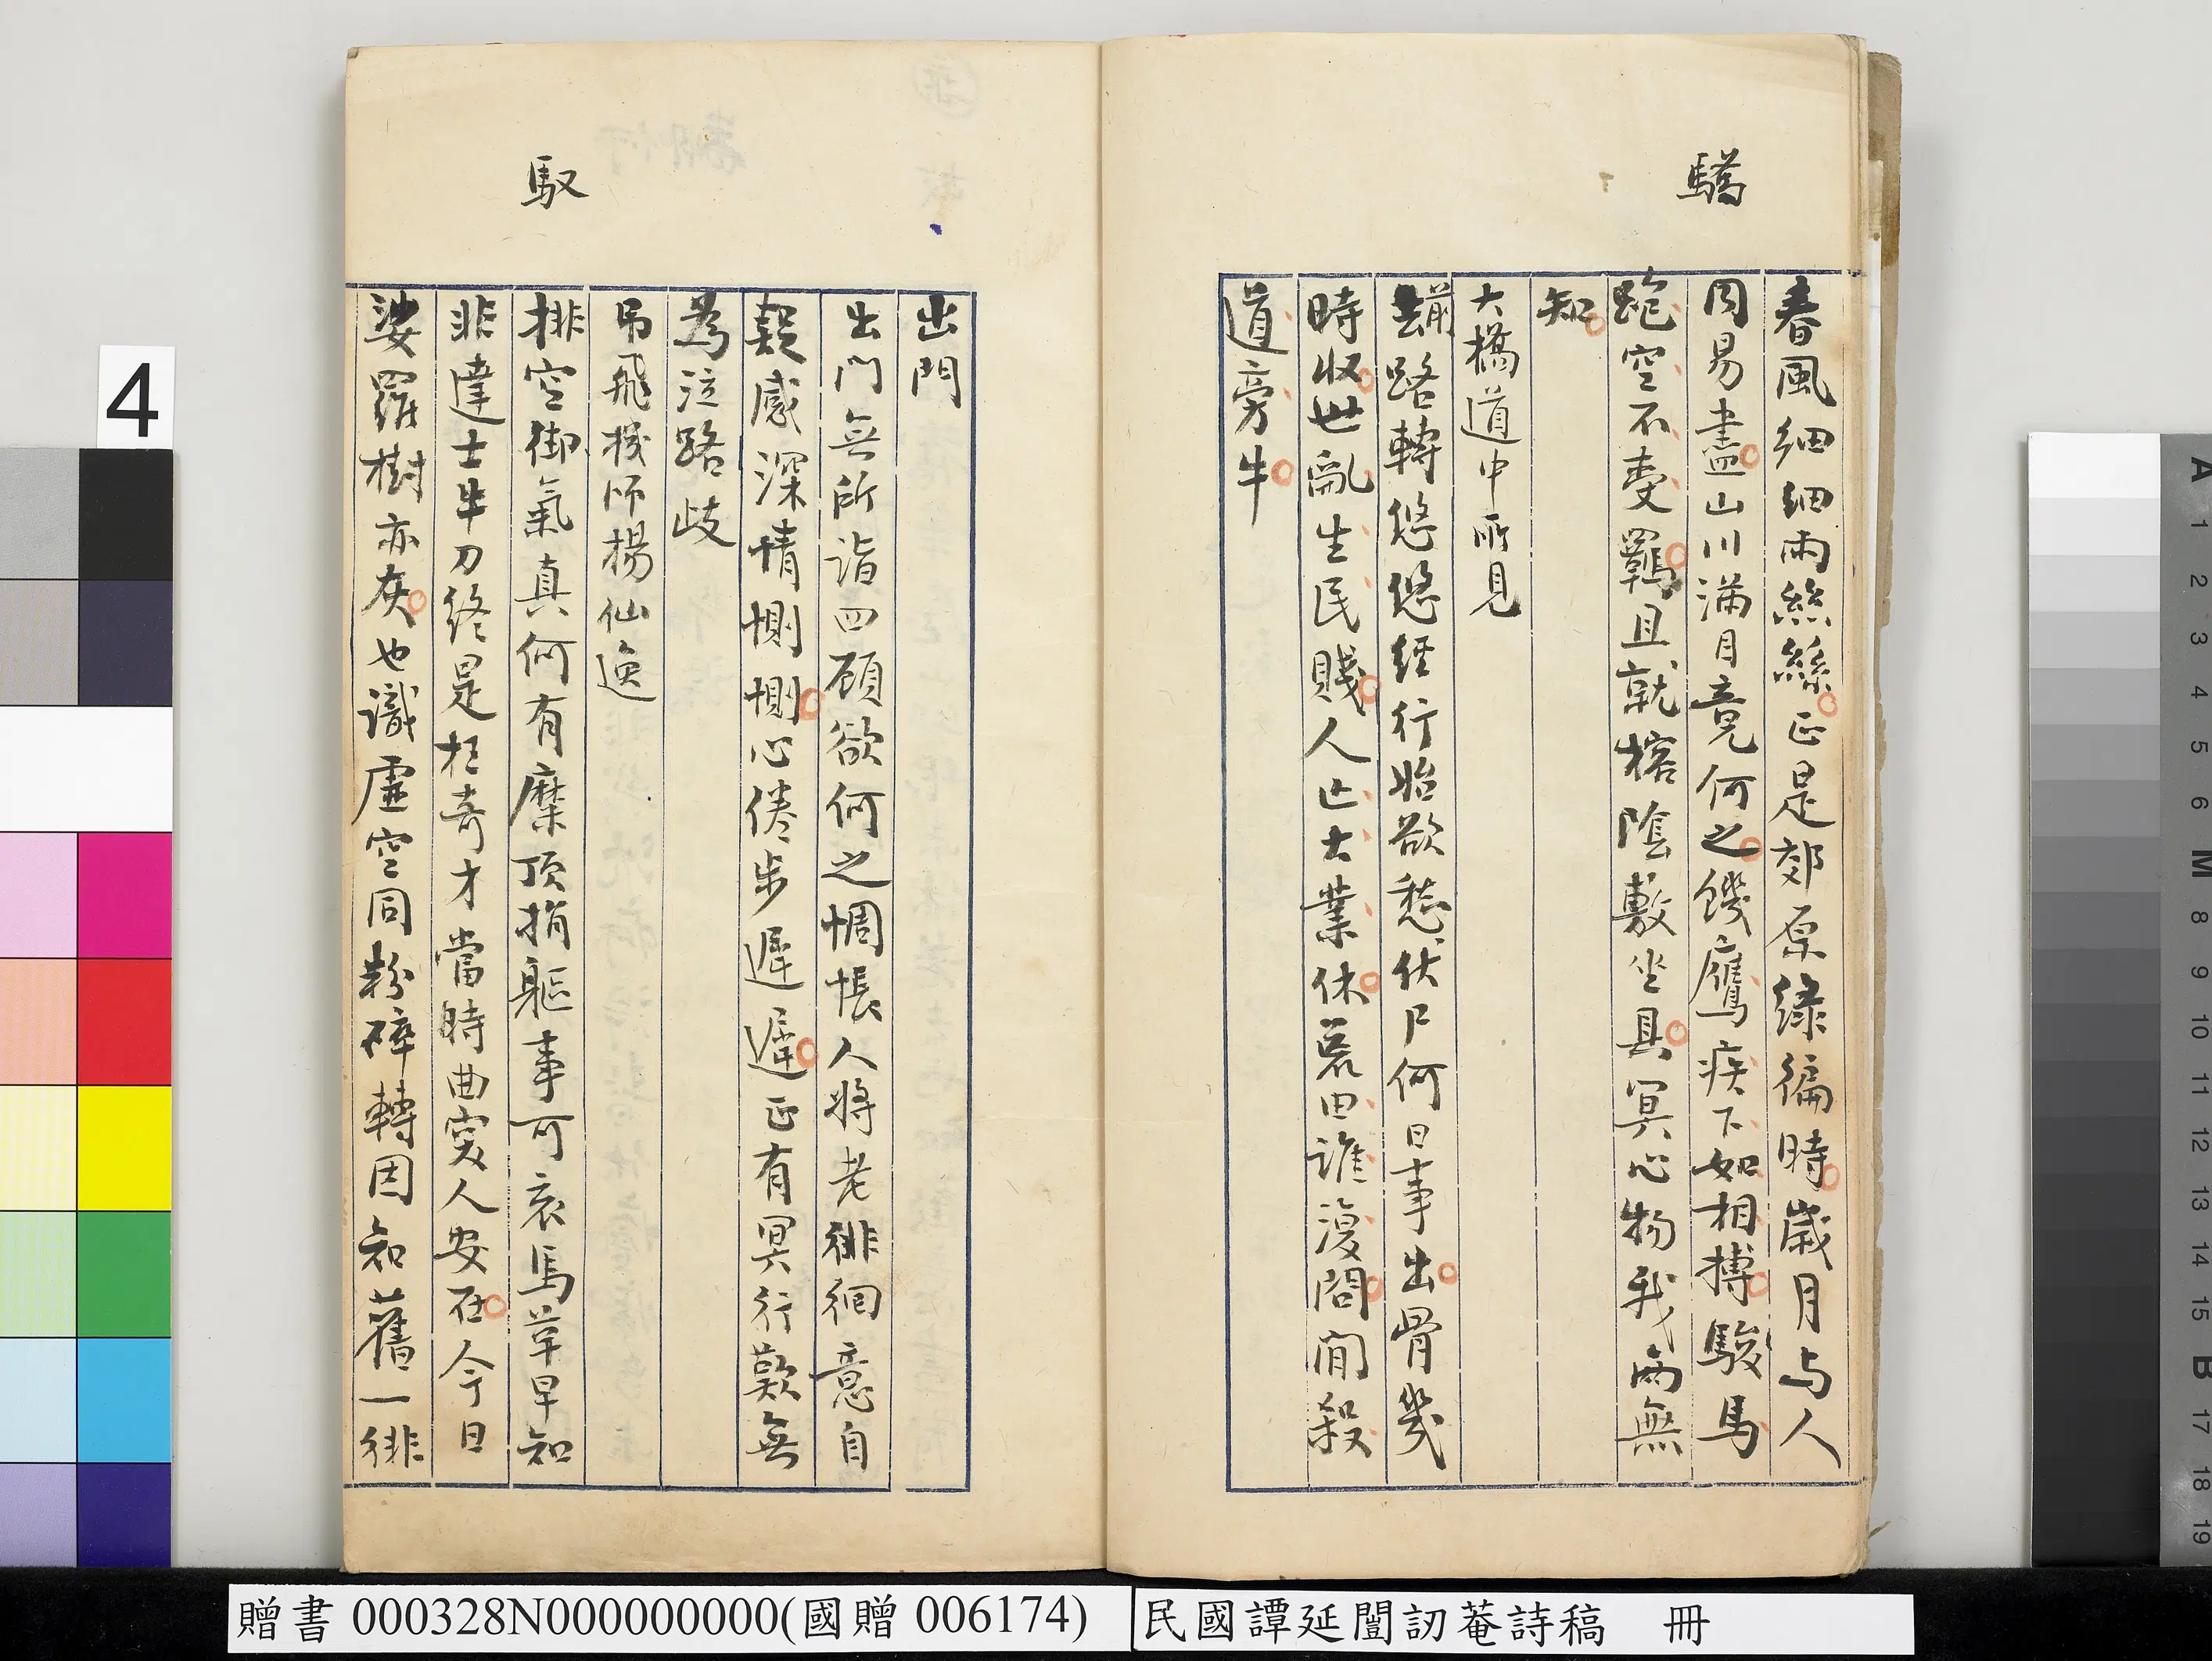 驕
春風細細雨絲絲正是郊原綠徧時歲月与人
同易盡山川滿目竟何之饑鷹疾下如相搏駿馬
跑空不受羈且就榕陰敷坐具冥心物我兩無
知
大橋道中所見
蹦路轉悠悠經行始欲愁伏尸何日事出骨幾
時收世亂生民賤人亡大業休衰田誰復問閒殺
道旁牛
馭
出門
出門無所詣四顧欲何之惆悵人將老徘徊意自
疑感深情惻惻心倦步遲遲正有冥行歎無
為泣路歧
弔飛機師楊仙逸
排空御氣真何有糜頂捐軀事可哀馬革早知
非達士牛刀終是枉奇才當時曲突人安在今日
娑羅樹亦灰也識虛空同粉碎轉因知舊一徘
4
贈書 000328N000000000(國贈 006174)
民國譚延闓訒菴詩稿 冊
A 1 2 3 4 5 6 M 8 9 10 11 12 13 14 15 B 17 18 19